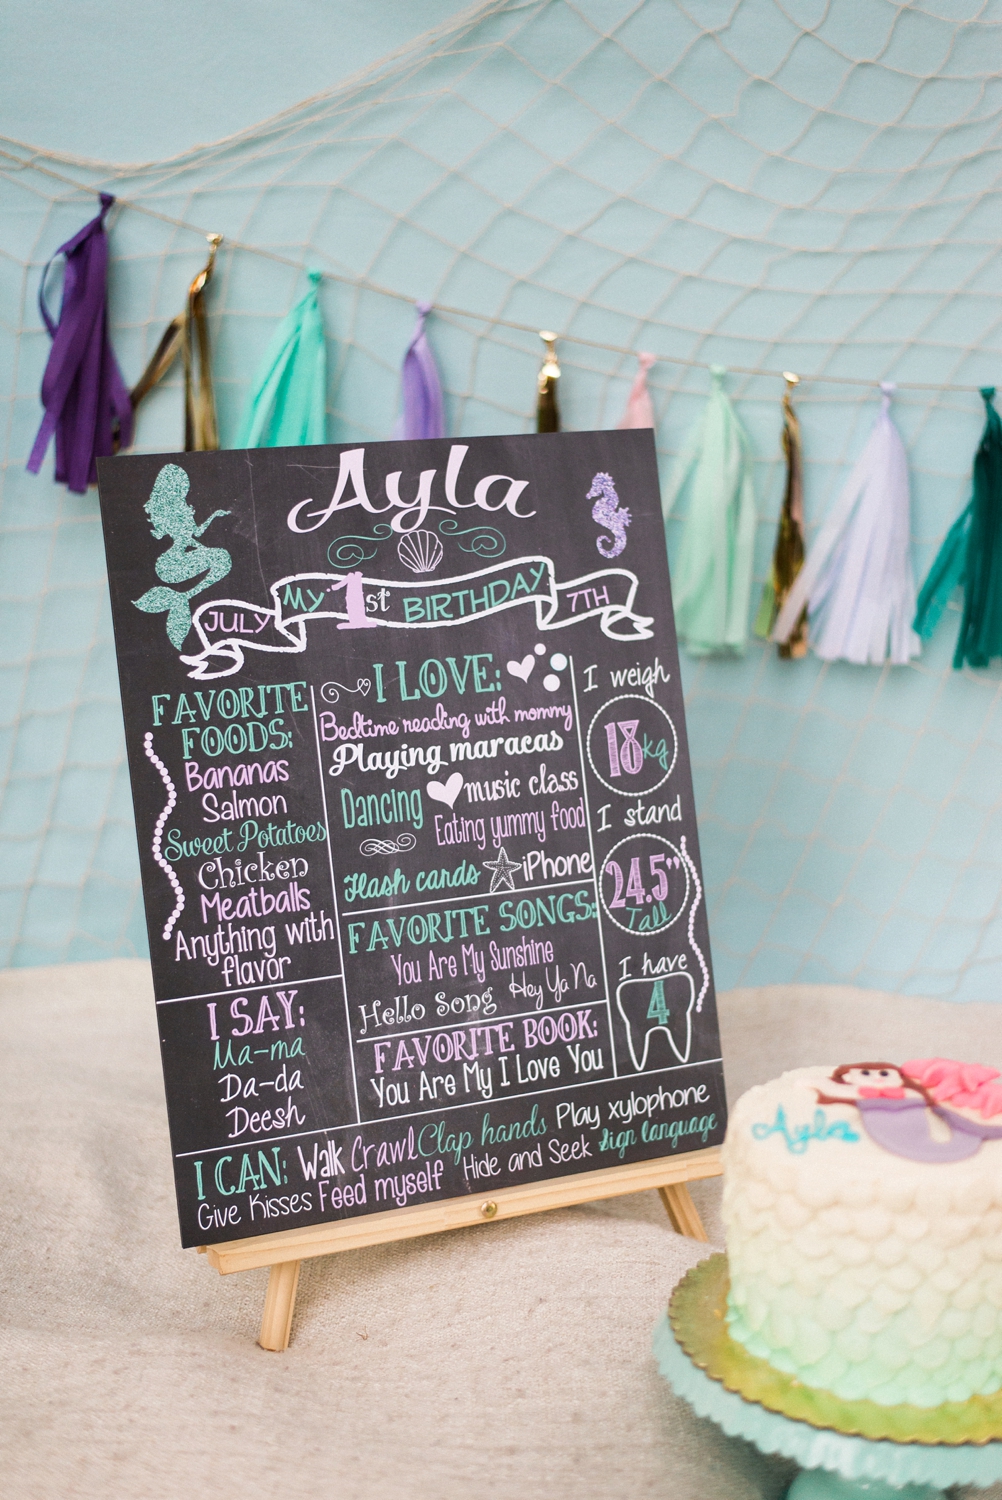 Ayla
JULY MY 1st BIRTHDAY 7TH
FAVORITE
FOODS:
Bananas
Salmon
Sweet Potatoes
Chicken
Meatballs
Anything with
flavor
I SAY:
Ma-ma
Da-da
Deesh
I LOVE:
Bedtime reading with mommy
Playing maracas
Dancing music class
Eating yummy food
Flash cards iPhone
FAVORITE SONGS:
You Are My Sunshine
Hello Song Hey Ya Na
FAVORITE BOOK:
You Are My I Love You
I weigh
18kg
I stand
24.5"
Tall
I have
4
I CAN: Walk Crawl Clap hands Play xylophone
Give Kisses Feed myself Hide and Seek Sign language
Ayla